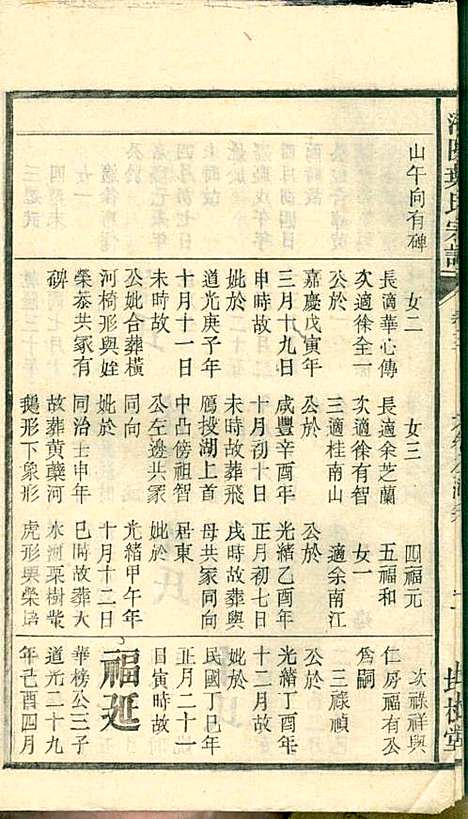 氏宗譜
山午向有碑
女二
長適華心傳
次適徐全一
公於
嘉慶戊寅年
三月十九日
申時故
妣於
道光庚子年
十月十一日
未時故
公妣合葬橫
河椅形與姪
榮泰共冢有
碑
女三
長適余芝蘭
次適徐有智
三適桂南山
公於
咸豐辛酉年
十月初九日
未時故葬飛
鴈投湖上首
中凸傍祖智
公左邊共冢
同向
妣於
同治壬申年
故葬黃蘗河
鵝形下象形
四福元
五福和
女一
適余南江
公於
光緒乙酉年
正月初七日
戌時故葬與
母共冢同向
居東
妣於
光緒甲午年
十月十二日
巳時故葬大
水河栗樹
虎形與榮培
次祿祥與
仁房福有公
爲嗣
三祿禎
公於
光緒丁酉年
十二月故
妣於
民國丁巳年
正月二十一
日寅時故
福延
華榜公三子
道光二十九
年己酉四月